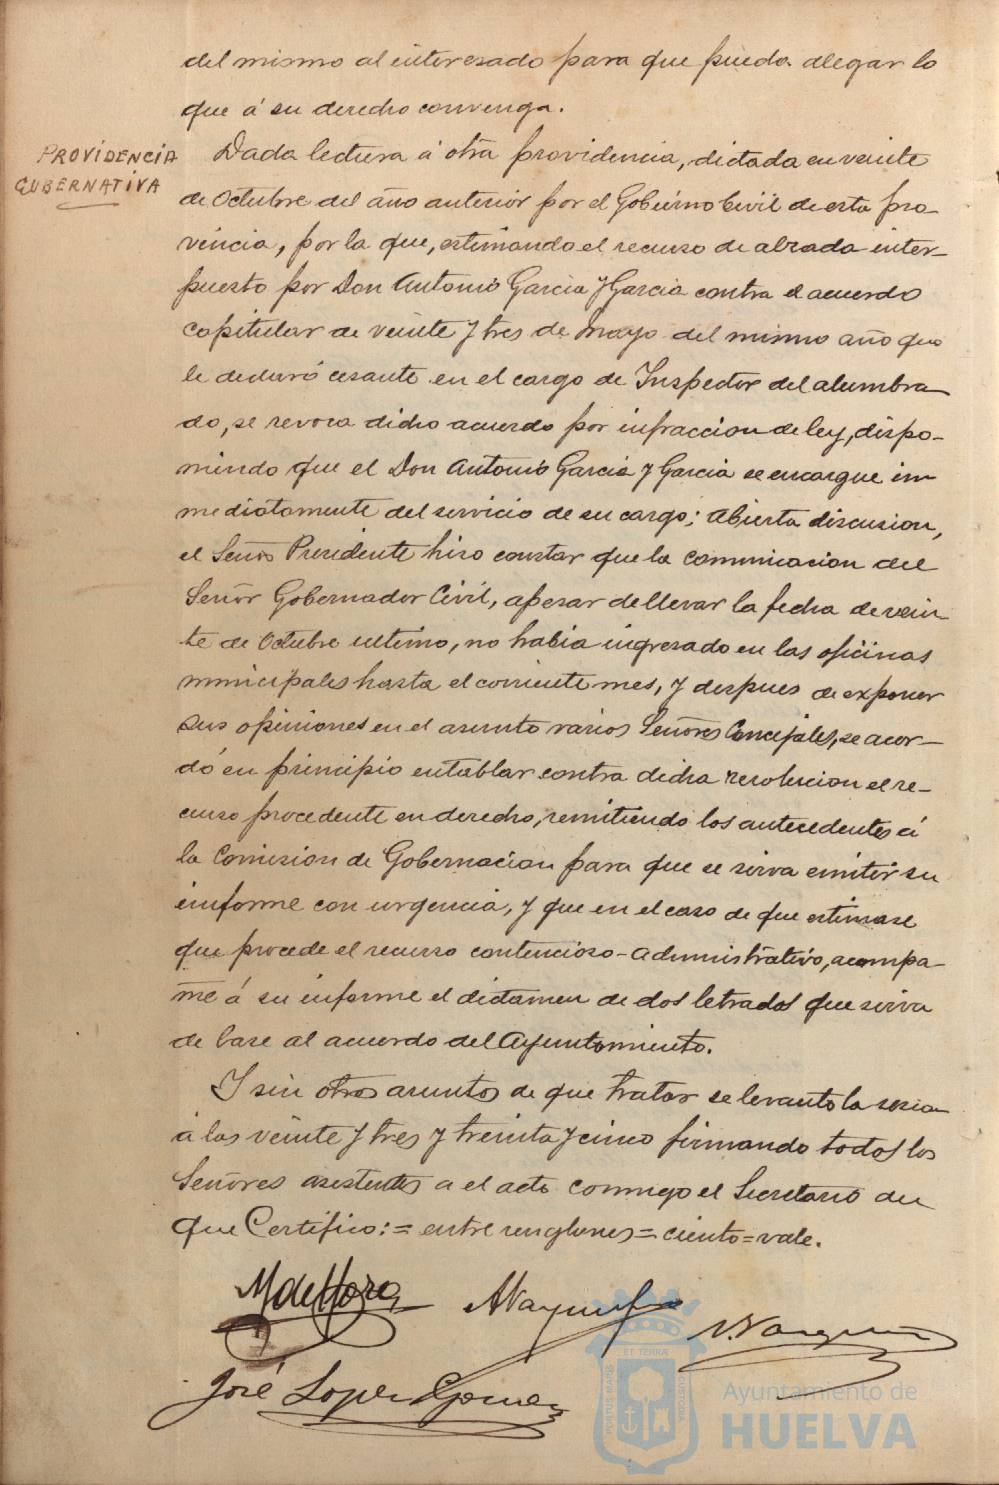 del mismo al interesado para que pueda alegar lo
que á su derecho convenga.
PROVIDENCIA
GUBERNATIVA
Dada lectura á otra providencia, dictada en veinte
de Octubre del año anterior por el Gobierno Civil de esta pro-
vincia, por la que, estimando el recurso de alzada inter-
puesto por Don Antonio Garcia y Garcia contra el acuerdo
capitular de veinte y tres de Mayo del mismo año que
le declaró cesante en el cargo de Inspector del alumbra
do, se revoca dicho acuerdo por infraccion de ley, dispo-
niendo que el Don Antonio Garcia y Garcia se encargue in
mediatamente del servicio de su cargo; Abierta discusion,
el Señor Presidente hizo constar que la comunicacion del
Señor Gobernador Civil, apesar de llevar la fecha de vein
te de Octubre ultimo, no habia ingresado en las oficinas
municipales hasta el corriente mes, y despues de exponer
sus opiniones en el asunto varios Señores Concejales, se acor-
dó en principio entablar contra dicha resolucion el re-
curso procedente en derecho, remitiendo los antecedentes á
la Comision de Gobernacion para que se sirva emitir su
informe con urgencia, y que en el caso de que estimase
que procede el recurso contencioso-administrativo, acompa-
ñe á su informe el dictamen de dos letrados que sirva
de base al acuerdo del Ayuntamiento.
Y sin otros asuntos de que tratar se levanto la sesion
á las veinte y tres y treinta y cinco firmando todos los
Señores asistentes a el acto conmigo el Secretario de
que Certifico:= entre renglones = ciento = vale.
M de Mora
A Vazquez
V. Vazquez
José Lopez Gomez
PORTUS MARIS
ET TERRÆ
CUSTODIA
Ayuntamiento de
HUELVA